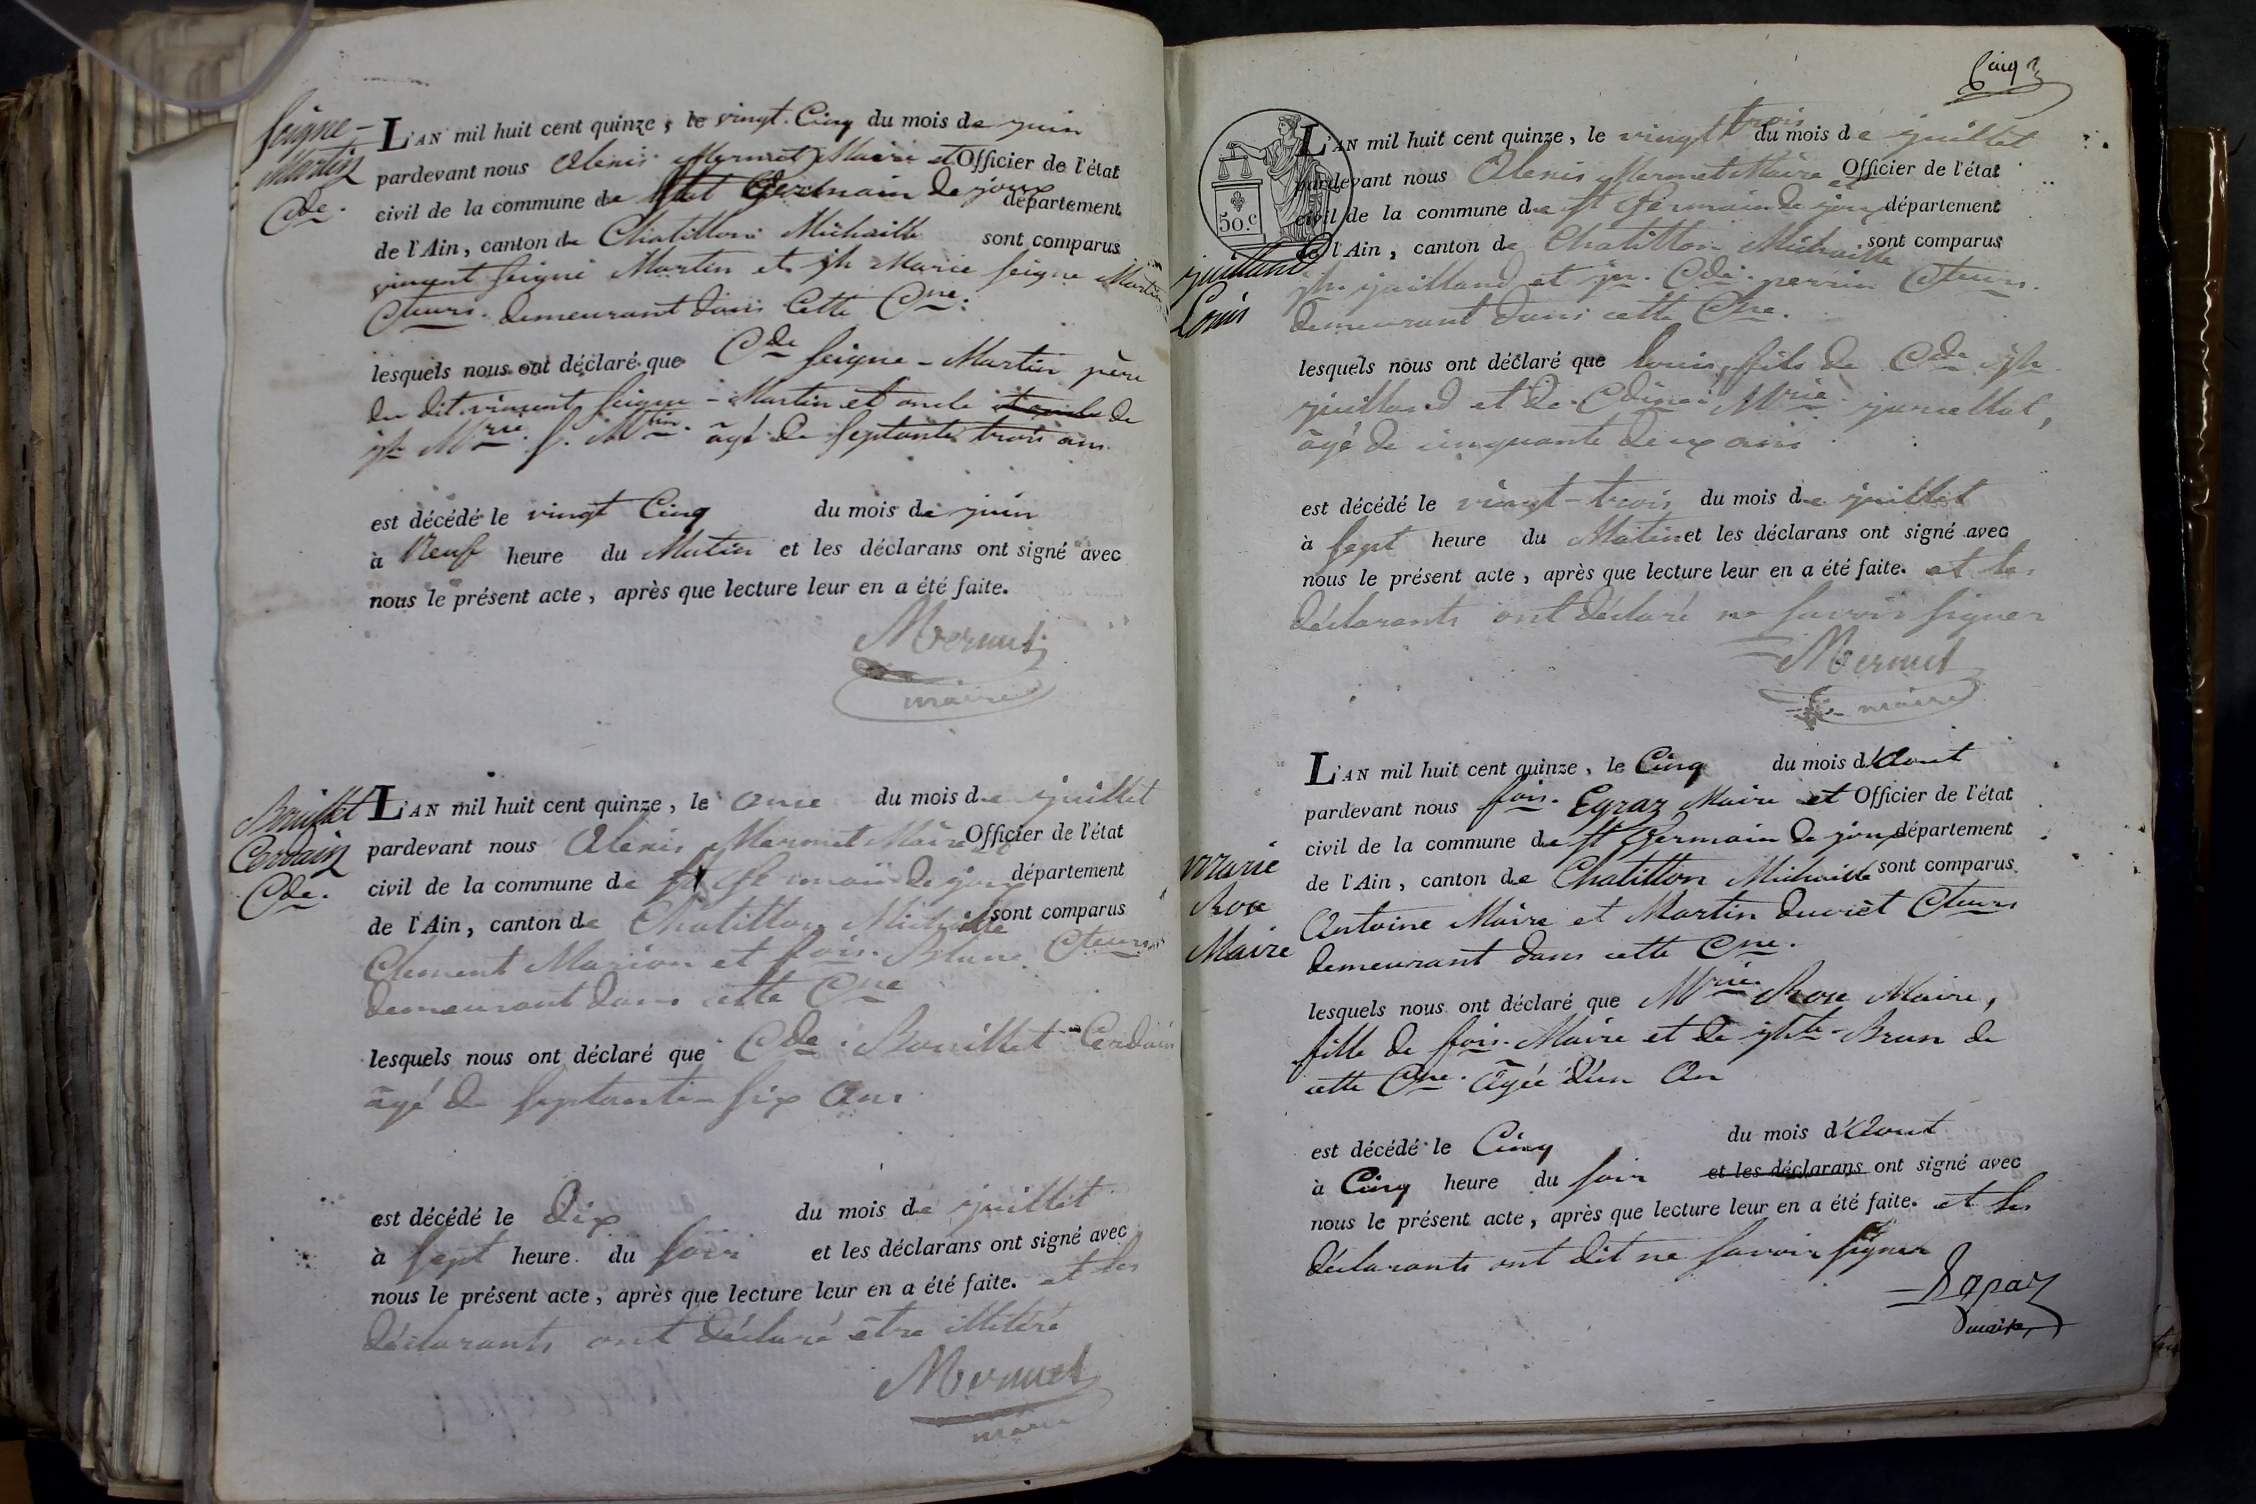 Seigne-
Martin
Cde.
L'AN mil huit cent quinze, le vingt-Cinq du mois de juin
pardevant nous Alexis Mermet Maire et Officier de l'état
civil de la commune de St Germain de joux département
de l'Ain, canton de Chatillon Michaille sont comparus
vincent Seigne Martin et jh Marie Seigne Martin
Cteurs. demeurant dans cette Cne.
lesquels nous ont déclaré que Cde Seigne-Martin père
du dit vincent Seigne-Martin et oncle de
jh Mrie. S. Mtin. âgé de septante trois ans
est décédé le vingt Cinq du mois de juin
à Neuf heure du Matin et les déclarans ont signé avec
nous le présent acte, après que lecture leur en a été faite.
Mermet
maire
Bouillet
Cerdain
Cde.
L'AN mil huit cent quinze, le onze du mois de juillet
pardevant nous Alexis Mermet Maire et Officier de l'état
civil de la commune de St Germain de joux département
de l'Ain, canton de Chatillon Michaille sont comparus
Clement Marion et fois. Blanc Cteurs
demeurant dans cette Cne
lesquels nous ont déclaré que Cde. Bouillet Cerdain
âgé de septante-six ans
est décédé le dix du mois de juillet
à sept heure du soir et les déclarans ont signé avec
nous le présent acte, après que lecture leur en a été faite. et les
déclarants ont déclaré être illitéré
Mermet
maire
Cinq
50.c
juilland
Louis
L'AN mil huit cent quinze, le vingt trois du mois de juillet
pardevant nous Alexis Mermet Maire et Officier de l'état
civil de la commune de St Germain de joux département
de l'Ain, canton de Chatillon Michaille sont comparus
jh. juilland et jn. Cde. perrin Cteurs.
demeurant dans cette Cne.
lesquels nous ont déclaré que Louis, fils de Cde jh
juilland et de Cdine Mrie
âgé de cinquante deux ans
est décédé le vingt-trois du mois de juillet
à sept heure du Matin et les déclarans ont signé avec
nous le présent acte, après que lecture leur en a été faite. et les
déclarants ont déclaré ne savoir signer
Mermet
maire
Marie
Rose
Maire
L'AN mil huit cent quinze, le Cinq du mois d'Aout
pardevant nous fois. Egraz Maire et Officier de l'état
civil de la commune de St Germain de joux département
de l'Ain, canton de Chatillon Michaille sont comparus
Antoine Maire et Martin duvret Cteurs
demeurant dans cette Cne.
lesquels nous ont déclaré que Mrie Rose Maire,
fille de fois. Maire et de jhte Brun de
cette Cne. âgée d'un An
est décédé le Cinq du mois d'Aout
à Cinq heure du soir et les déclarans ont signé avec
nous le présent acte, après que lecture leur en a été faite. et les
déclarants ont dit ne savoir signer
Egraz
maire